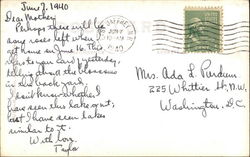 June 7, 1940
Dear Mother,
Perhaps there will be
some roses left when I
get home in June 16. This
is to you card yesterday,
telling about the blossoms
in old back yard
I don't know whether I
have seen this lake or not;
but I have seen lakes
similar to it.
With love,
JUN 7
1940
Mrs. Ada L. Purdum
225 Whittier St. N.W.
Washington, D.C.